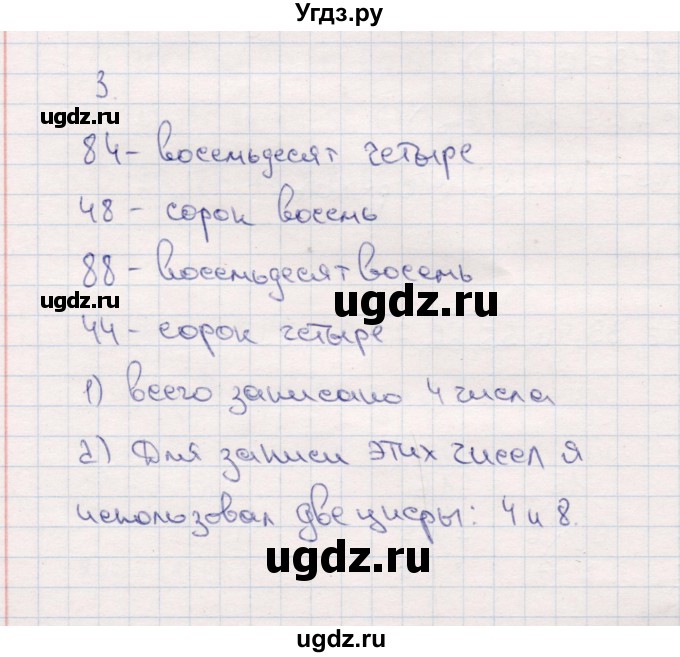 Угдз.ру
3.
ugdz.ru
84 - восемьдесят четыре
48 - сорок восемь
88 - восемьдесят восемь
ugdz.ru
ugdz.ru
44 - сорок четыре
1) всего записано 4 числа
2) Для записи этих чисел я
использовал две цифры: 4 и 8.
ugdz.ru
ugdz.ru